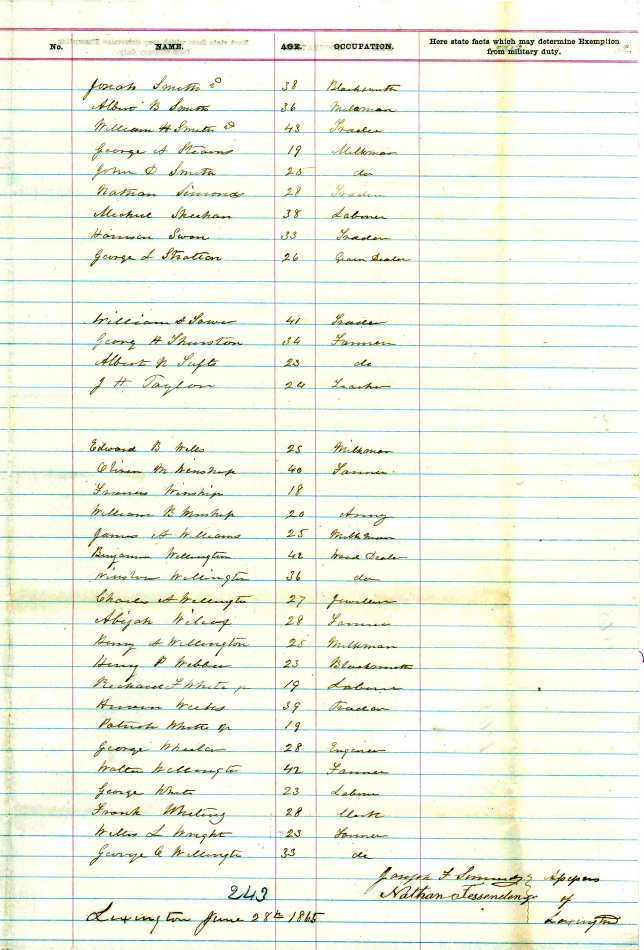 No. NAME. AGE. OCCUPATION. Here state facts which may determine Exemption from military duty.
Josiah Smith 2d 38 Blacksmith
Albert B Smith 36 Milkman
William H Smith 2d 43 Trader
George A Stearns 19 Milkman
John D Smith 25 do
Nathan Simonds 28 Trader
Michiel Sheehan 38 Laborer
Harrison Swan 33 Trader
George L Stratton 26 Grain Dealer
William A 41 Trader
Georg H Thurston 34 Farmer
Albert N Tufts 23 do
J H Taylor 24 Teacher
Edward B Wells 25 Milkman
Oliver M Winship 40 Farmer
Francis Winship 18
William B Winship 20 Army
James A Williams 25 Milkman
Benjamin Wellington 42 Wood Dealer
Winslow Wellington 36 do
Charles A Wellington 27 Jeweller
Abijah Wilcox 28 Farmer
Henry A Wellington 25 Milkman
Henry P Webber 23 Blacksmith
Richard F White jr 19 Laborer
Hiram Weeks 39 Trader
Patrick White jr 19
George Wheeler 28 Engineer
Walter Wellington 42 Farmer
George White 23 Labore
Frank Whiting 28 Clerk
Willis L Wright 23 Farmer
George C Wellington 33 do
Joseph F Simonds
Nathan Fessenden
of
Lexington
243
Lexington June 28th 1865